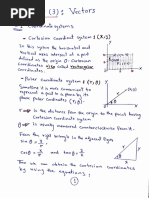 (3): Vectors
Coordinate systems
Cartesian coordinate system: (X,Y)
In this system the horizontal and
vertical axes intersect at a point
defined as the origin O. Cartesian
Coordinates also called rectangular
coordinates.
Polar coordinate system: (r,θ)
Sometime it is more convenient to
represent a point in a plane by its
plane Polar coordinates (r,θ).
Where r is the distance from the origin to the point having
Cartesian coordinates (x,y).
θ is usually measured counterclockwise from
From the right triangle in the adjacent figure
sin θ = y/r
cos θ = x/r
tan θ = y/x
You can obtain the cartesian coordinates
by using the equations:
1